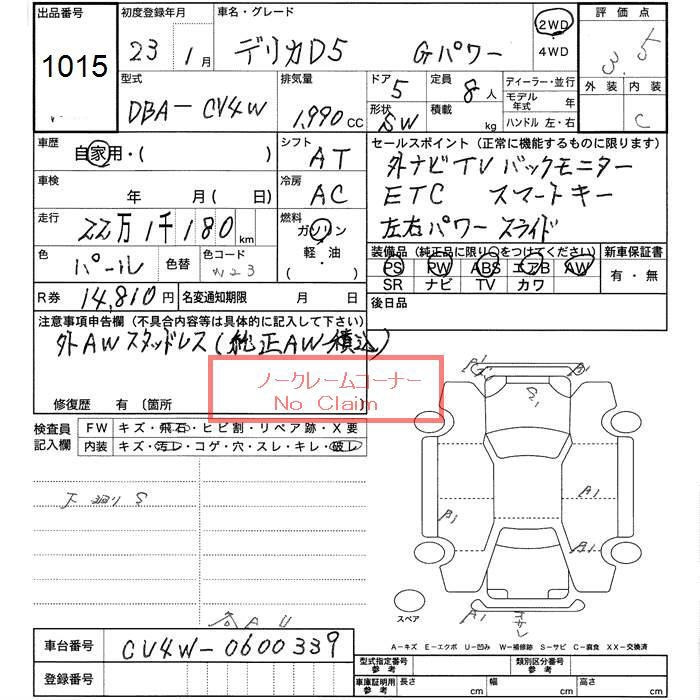 出品番号 初度登録年月 車名・グレード 2WD 評価点
1015 23 1月 デリカD5 Gパワー 4WD 3.5
型式 排気量 ドア 定員 ディーラー・並行 外装 内装
DBA-CV4W 1,990cc 5 8人 モデル年式 年 C
形状 積載 ハンドル 左・右
SW kg
車歴 シフト セールスポイント (正常に機能するものに限ります)
自家用・( ) AT 外ナビTV バックモニター
車検 冷房 ETC スマートキー
年 月 (日) AC 左右パワースライド
走行 燃料
22万1千180km ガソリン
軽・油
( )
装備品 (純正品に限り○をつけてください) 新車保証書
色 色替 色コード PS PW ABS エアB AW 有・無
パール W23 SR ナビ TV カワ
R券 14,810円 名変通知期限 月 日 後日品
注意事項申告欄 (不具合内容等は具体的に記入して下さい)
外AWスタッドレス(純正AW積込)
ノークレームコーナー
No Claim
修復歴 有 〔箇所 〕
検査員記入欄 FW キズ・飛石・ヒビ割・リペア跡・X要
内装 キズ・汚レ・コゲ・穴・スレ・キレ・破レ
下廻りS
各AU
A1
A1
B1
スペア
A-キズ E-エクボ U-凹み W-補修跡 S-サビ C-腐食 XX-交換済
車台番号 CV4W-0600339
登録番号
型式指定番号 参考 類別区分番号 参考
車庫証明用 参考 長さ cm 幅 cm 高さ cm